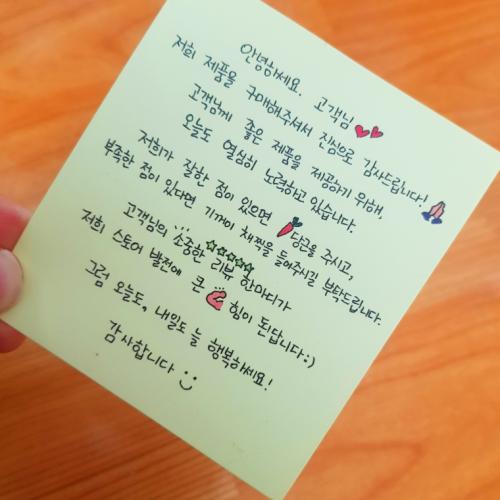 안녕하세요. 고객님
저희 제품을 구매해주셔서 진심으로 감사드립니다!
고객님께 좋은 제품을 제공하기 위해,
오늘도 열심히 노력하고 있습니다.
저희가 잘한 점이 있으면 당근을 주시고,
부족한 점이 있다면 기꺼이 채찍을 들어주시길 부탁드립니다.
고객님의 소중한 리뷰 한마디가
저희 스토어 발전에 큰 힘이 된답니다:)
그럼 오늘도, 내일도 늘 행복하세요!
감사합니다